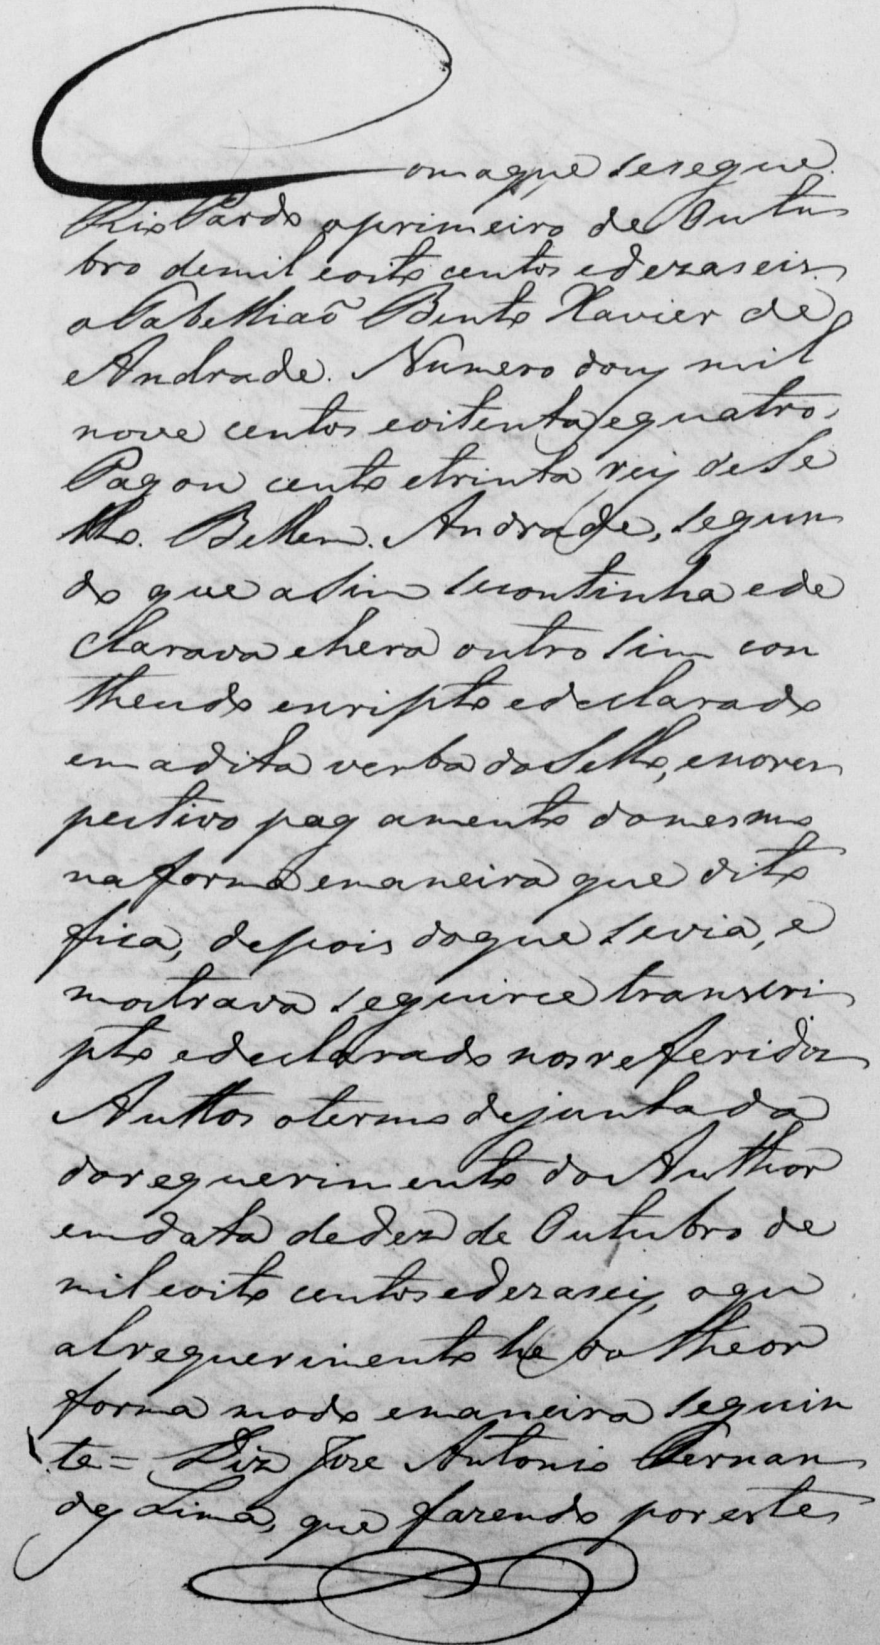 Com a que se segue
Rio Pardo o primeiro de Outu
bro de mil e oito centos e dezaseis
o Tabelliaõ Bento Xavier de
Andrade. Numero dous mil
nove centos e oitenta e quatro.
Pagou cento e trinta reis de Se
llo. Bellem. Andrade, segun
do que asim se continha e de
clarava e hera outro sim con
theudo escripto e declarado
em a dita verba do Sello, e no res
pectivo pagamento do mesmo
na forma e maneira que dito
fica, depois do que se via, e
mostrava seguirce transcri
pto e declarado nos referidos
Auttos o termo de juntada
do requerimento do Author
em data de dez de Outubro de
mil e oito centos e dezaseis, o qu
al requerimento he do theor
forma modo e maneira seguin
te = Diz Jose Antonio Fernan
des Lima, que fazendo por este